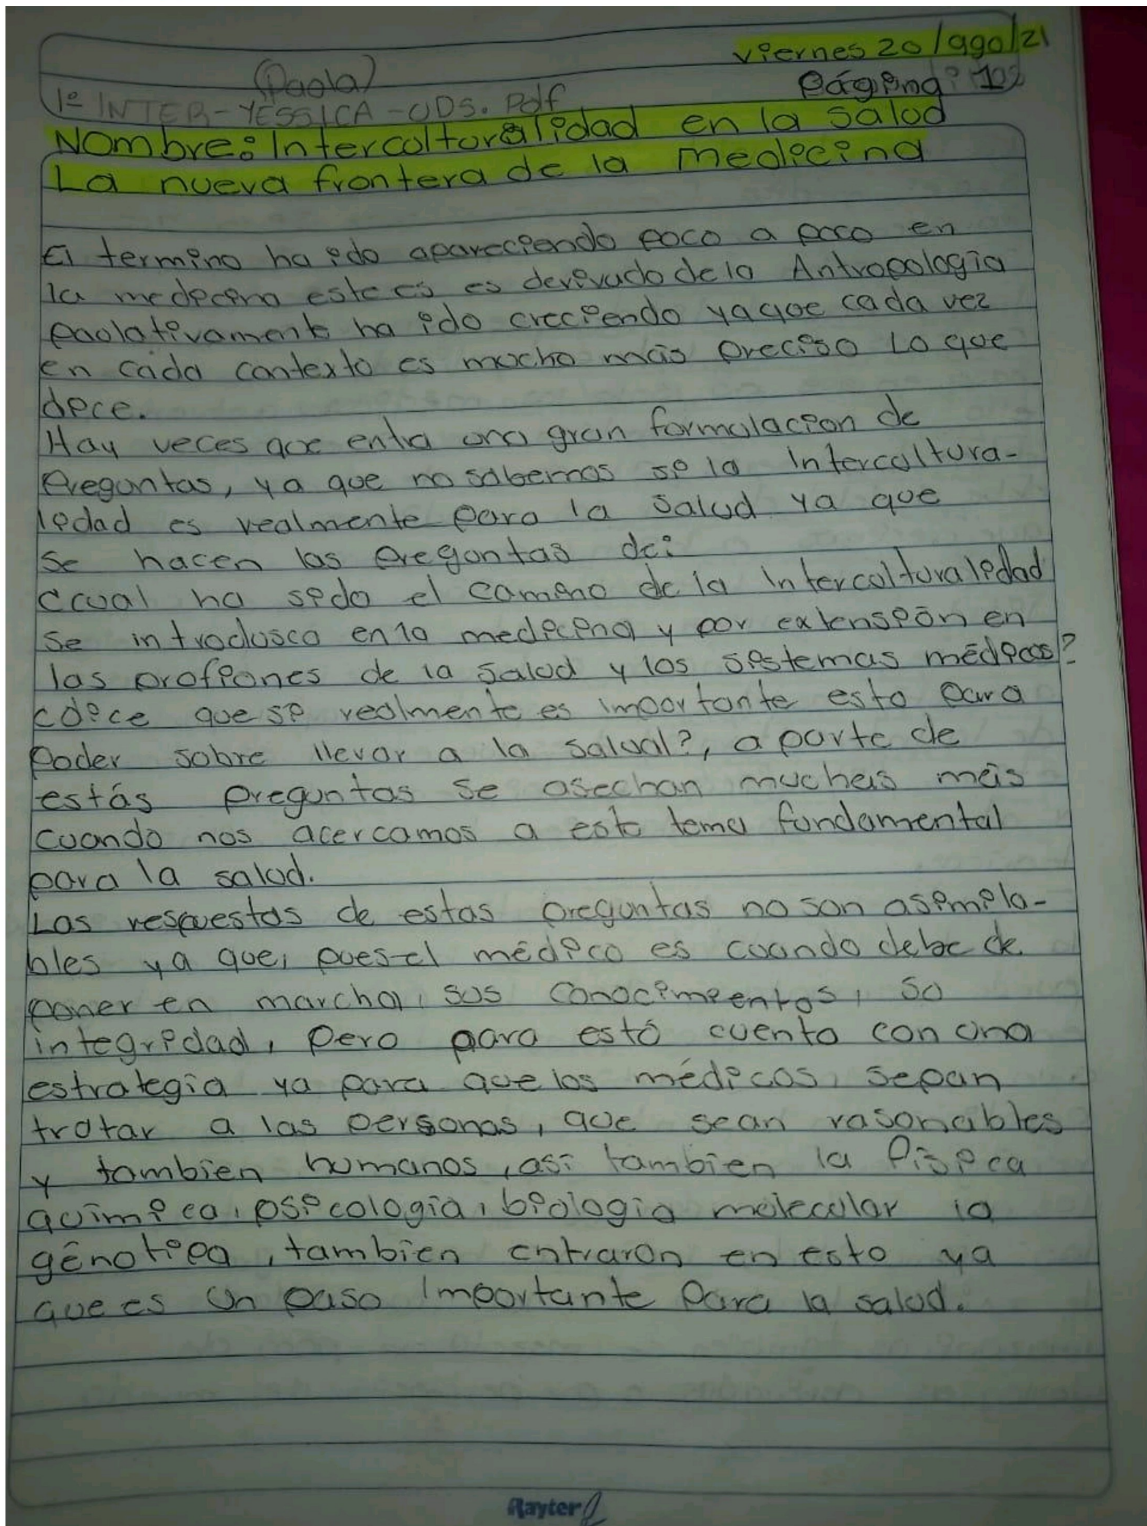 viernes 20/ago/21
(Paola)
Página: 102
1º INTER-YESSICA-UDS. Pdf
Nombre: Interculturalidad en la salud
La nueva frontera de la medicina
El termino ha ido apareciendo poco a poco en
la medicina este es es derivado de la Antropologia
paolativamente ha ido creciendo ya que cada vez
en cada contexto es mucho más preciso Lo que
dice.
Hay veces que entra una gran formulacion de
Preguntas, ya que no sabemos si la Intercultura-
lidad es realmente para la salud ya que
se hacen las preguntas de:
¿cual ha sido el camino de la Interculturalidad
se introdusco en la medicina y por extensión en
las profiones de la salud y los sistemas médicos?
¿dice que si realmente es importante esto para
Poder sobre llevar a la salual?, a parte de
estás preguntas se asechan muchas más
cuando nos acercamos a este tema fundamental
para la salud.
Las respuestas de estas preguntas no son asimila-
bles ya que, pues el médico es cuando debe de
poner en marcha, sus conocimientos, so
integridad, pero para estó cuento con una
estrategia ya para que los médicos, sepan
tratar a las personas, que sean rasonables
y tambien humanos, asi tambien la Fisica
química, psicologia, biologia molecular la
génotica, tambien entraron en esto ya
que es un paso Importante Para la salud.
Rayter